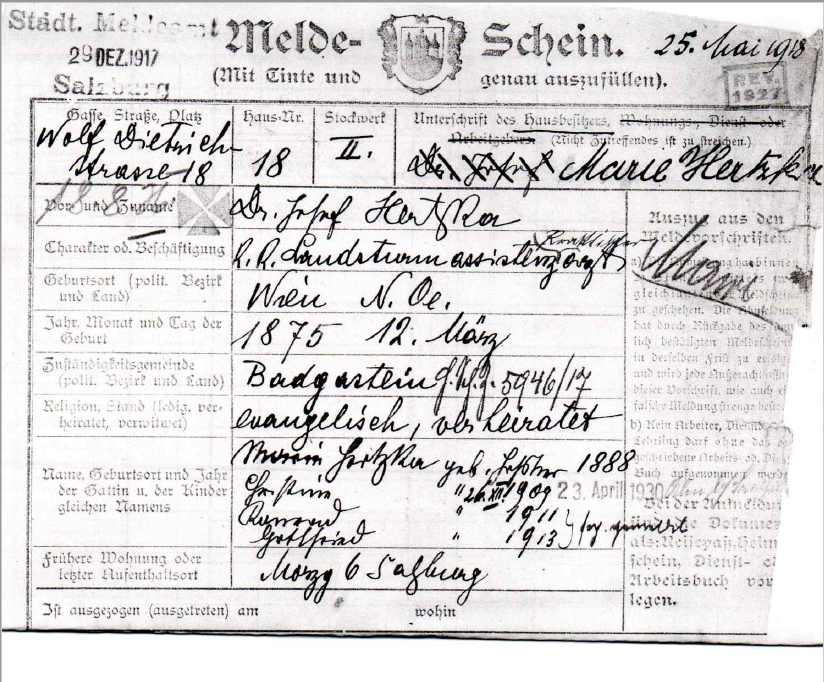 Städt. Meldeamt
29 DEZ. 1917
Salzburg
Melde-Schein.
25. Mai 1918
(Mit Tinte und genau auszufüllen).
REV.
1927
Gasse, Straße, Platz
Wolf Dietrich-
strasse 18
Haus-Nr.
18
Stockwerk
II.
Unterschrift des Hausbesitzers, Wohnungs-, Dienst- oder
Arbeitgebers. (Nicht Zutreffendes ist zu streichen.)
Dr. Josef Marie Hertzka
Vor- und Zuname
Dr. Josef Hertzka
Charakter od. Beschäftigung
K. K. Landsturmassistenzarzt
Praktischer
Geburtsort (polit. Bezirk
und Land)
Wien N. Oe.
Jahr, Monat und Tag der
Geburt
1875 12. März
Zuständigkeitsgemeinde
(polit. Bezirk und Land)
Badgastein 5946/17
Religion, Stand (ledig, ver-
heiratet, verwitwet)
evangelisch, verheiratet
Name, Geburtsort und Jahr
der Gattin u. der Kinder
gleichen Namens
Marie Hertzka geb. 1888
Christine " 26. XII. 1909
23. April 1930
Konrad " 1911
Gottfried " 1913
Frühere Wohnung oder
letzter Aufenthaltsort
Morzg 6 Salzburg
Ist ausgezogen (ausgetreten) am wohin
Auszug aus den
Meldevorschriften.
zu geschehen. Die
hat durch Rückgabe des
lich bestätigten
in derselben Frist zu
und wird jede
dieser Vorschrift, wie auch
falsche Meldung strenge
b) Kein Arbeiter,
Lehrling darf ohne das
Arbeits- od.
Buch aufgenommen
Bei der
Dokumen
als: Reisepaß, Heim
schein, Dienst-
Arbeitsbuch vor
legen.